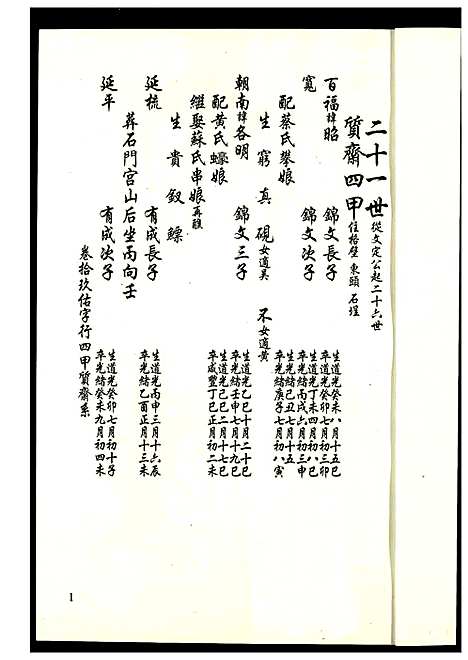 二十一世 從文定公起二十六世
質齋四甲 住格壁 東頭 石埕
百福諱昭 錦文長子 生道光癸未八月十五巳 卒道光癸卯七月初三卯
寬 錦文次子 生道光丁未四月初八巳 卒光緒丙戌六月初三申
配蔡氏攀娘 生光緒己丑七月十五 卒光緒庚子七月初八寅
生 窮 真 硯 女適吴 不 女適黄
朝南諱各明 錦文三子 生道光乙巳十月二十巳 卒光緒壬申七月十九巳
配黄氏蠔娘 生道光己巳二月十七巳 卒咸豐丁巳正月初二未
繼娶蘇氏串娘 再醮
生 貴 釵 鰾
延梳 有成長子 生道光丙申三月十六辰 卒光緒乙酉正月十三未
葬石門宫山后坐丙向壬
延平 有成次子 生道光癸卯七月初十子 卒光緒癸未九月初四未
卷拾玖佑字行四甲質齋系
1